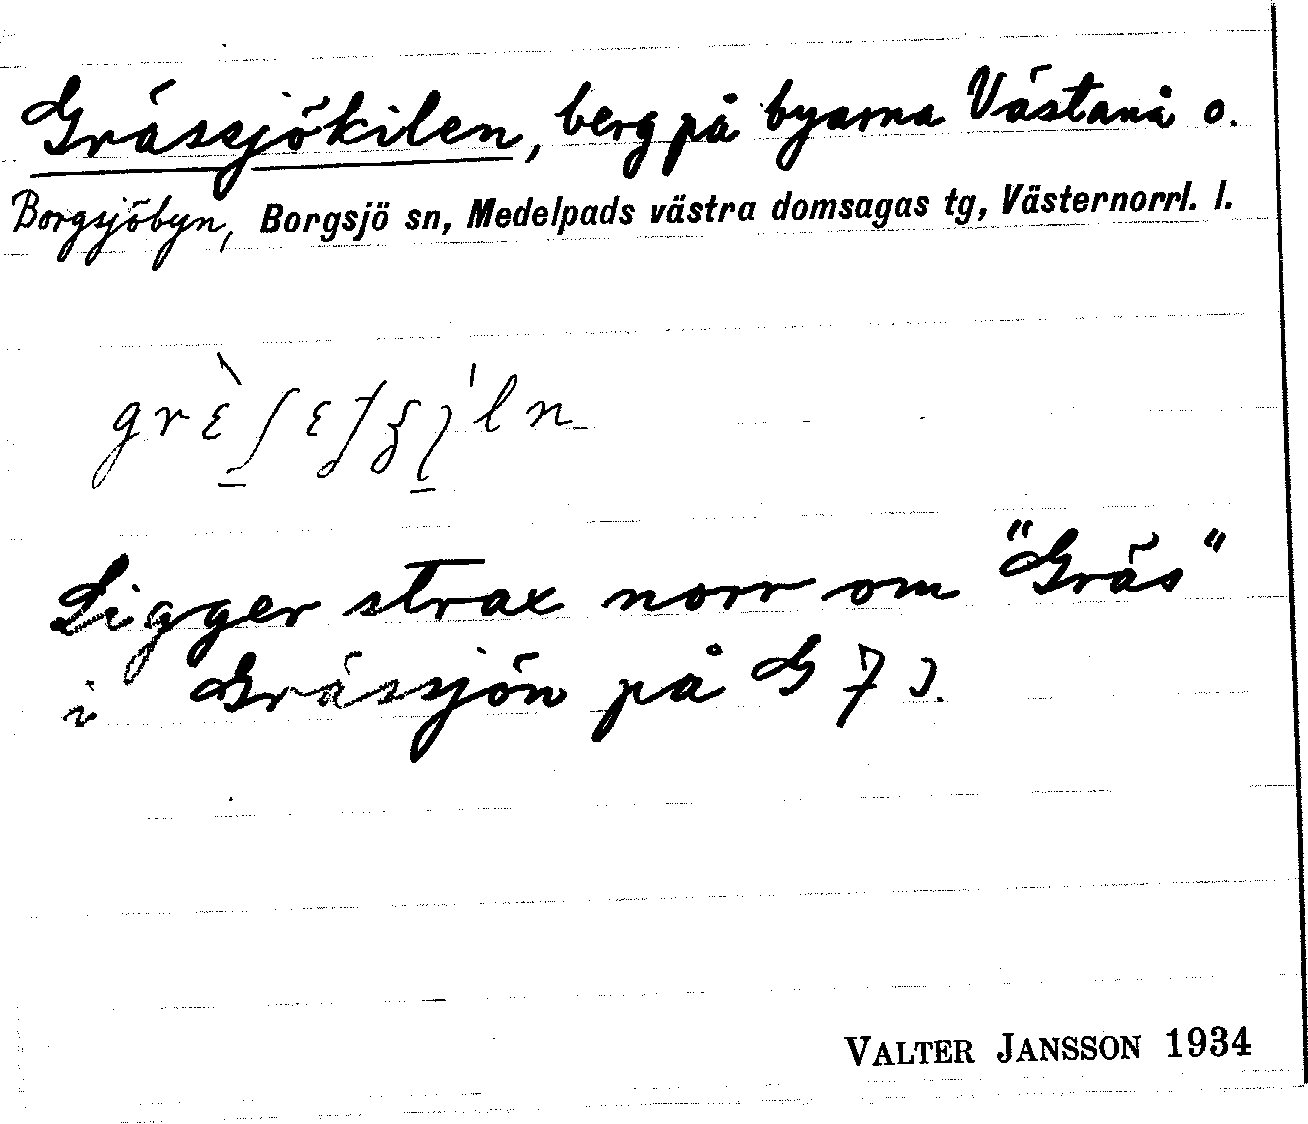 Grässjökilen, berg på byarna Västanå o.
Borgsjöbyn, Borgsjö sn, Medelpads västra domsagas tg, Västernorrl. l.
Ligger strax norr om "Gräs"
i Grässjön på G 7 J.
VALTER JANSSON 1934